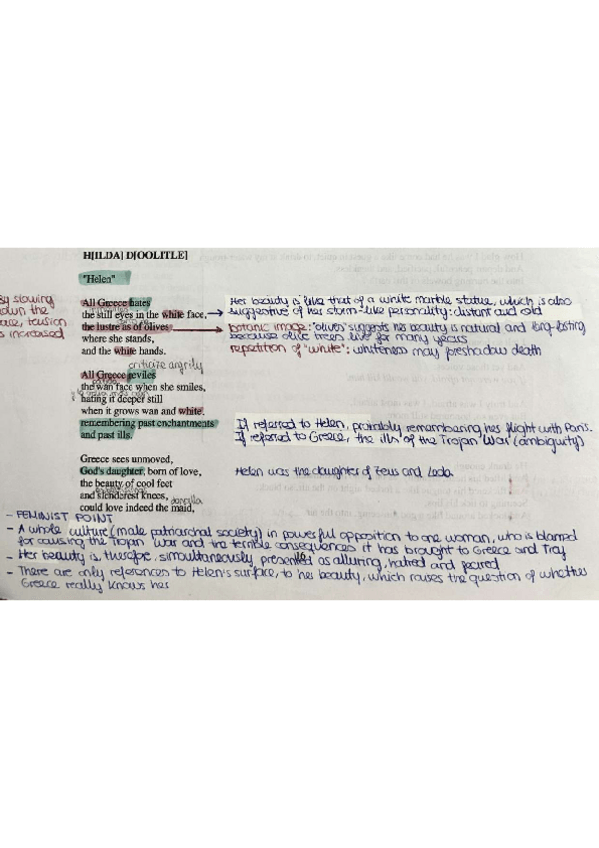 H[ILDA] D[OOLITLE]
"Helen"
All Greece hates
the still eyes in the white face,
the lustre as of olives
where she stands,
and the white hands.
criticize angrily
All Greece reviles
the wan face when she smiles,
hating it deeper still
when it grows wan and white,
remembering past enchantments
and past ills.
Greece sees unmoved,
God's daughter, born of love,
the beauty of cool feet
and slenderest knees,
could love indeed the maid,
donzella
By slowing
down the
tension
is increased
Her beauty is like that of a white marble statue, which is also
suggestive of her storm-like personality: distant and cold
botanic image: "olives" suggests his beauty is natural and long-lasting
because olive trees live for many years
repetition of "white": whiteness may foreshadow death
If referred to Helen, probably remembering her flight with Paris.
If referred to Greece, the ills of the Trojan War (ambiguity)
Helen was the daughter of Zeus and Leda.
- FEMINIST POINT
- A whole culture (male patriarchal society) in powerful opposition to one woman, who is blamed
for causing the Trojan War and the terrible consequences it has brought to Greece and Troy
- Her beauty is, therefore, simultaneously presented as alluring, hatred and feared
16
- There are only references to Helen's surface, to her beauty, which raises the question of whether
Greece really knows her